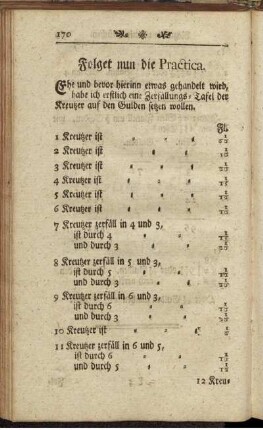 170
Folget nun die Practica.
Ehe und bevor hierinn etwas gehandelt wird,
habe ich erstlich eine Zerfällungs-Tafel der
Kreutzer auf den Gulden setzen wollen.
Fl.
1 Kreutzer ist
2 Kreutzer ist
3 Kreutzer ist
4 Kreutzer ist
5 Kreutzer ist
6 Kreutzer ist
7 Kreutzer zerfäll in 4 und 3,
ist durch 4
und durch 3
8 Kreutzer zerfäll in 5 und 3,
ist durch 5
und durch 3
9 Kreutzer zerfäll in 6 und 3,
ist durch 6
und durch 3
10 Kreutzer ist
11 Kreutzer zerfäll in 6 und 5,
ist durch 6
und durch 5
12 Kreu-